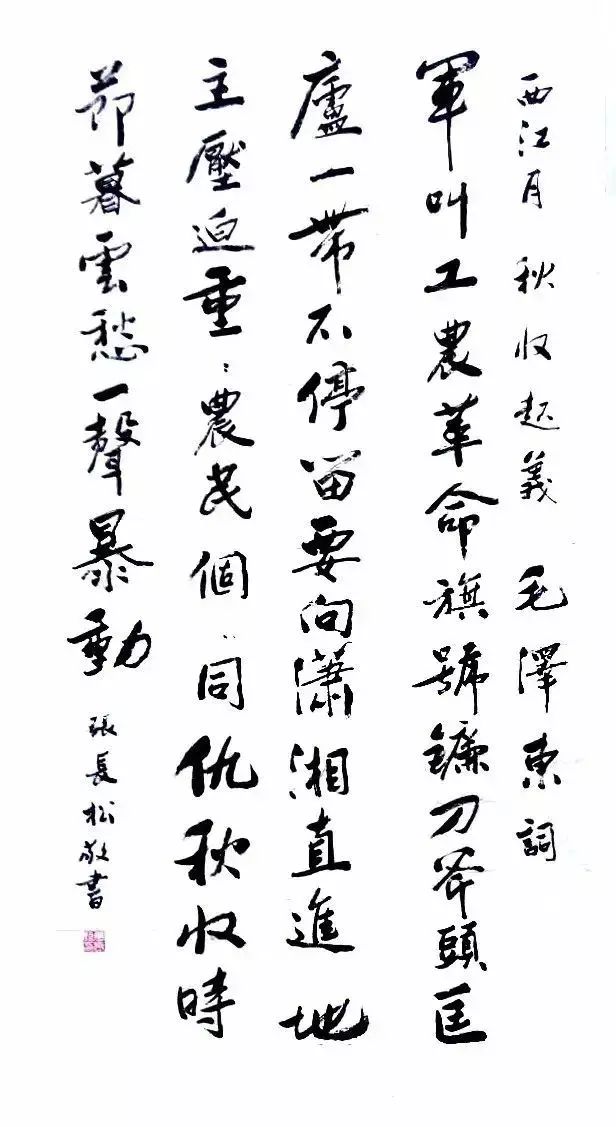 西江月 秋收起義 毛澤東詞
軍叫工農革命旗號鐮刀斧頭匡
廬一帶不停留要向瀟湘直進地
主壓迫重〻農民個〻同仇秋收時
節暮雲愁一聲暴動
張長松敬書